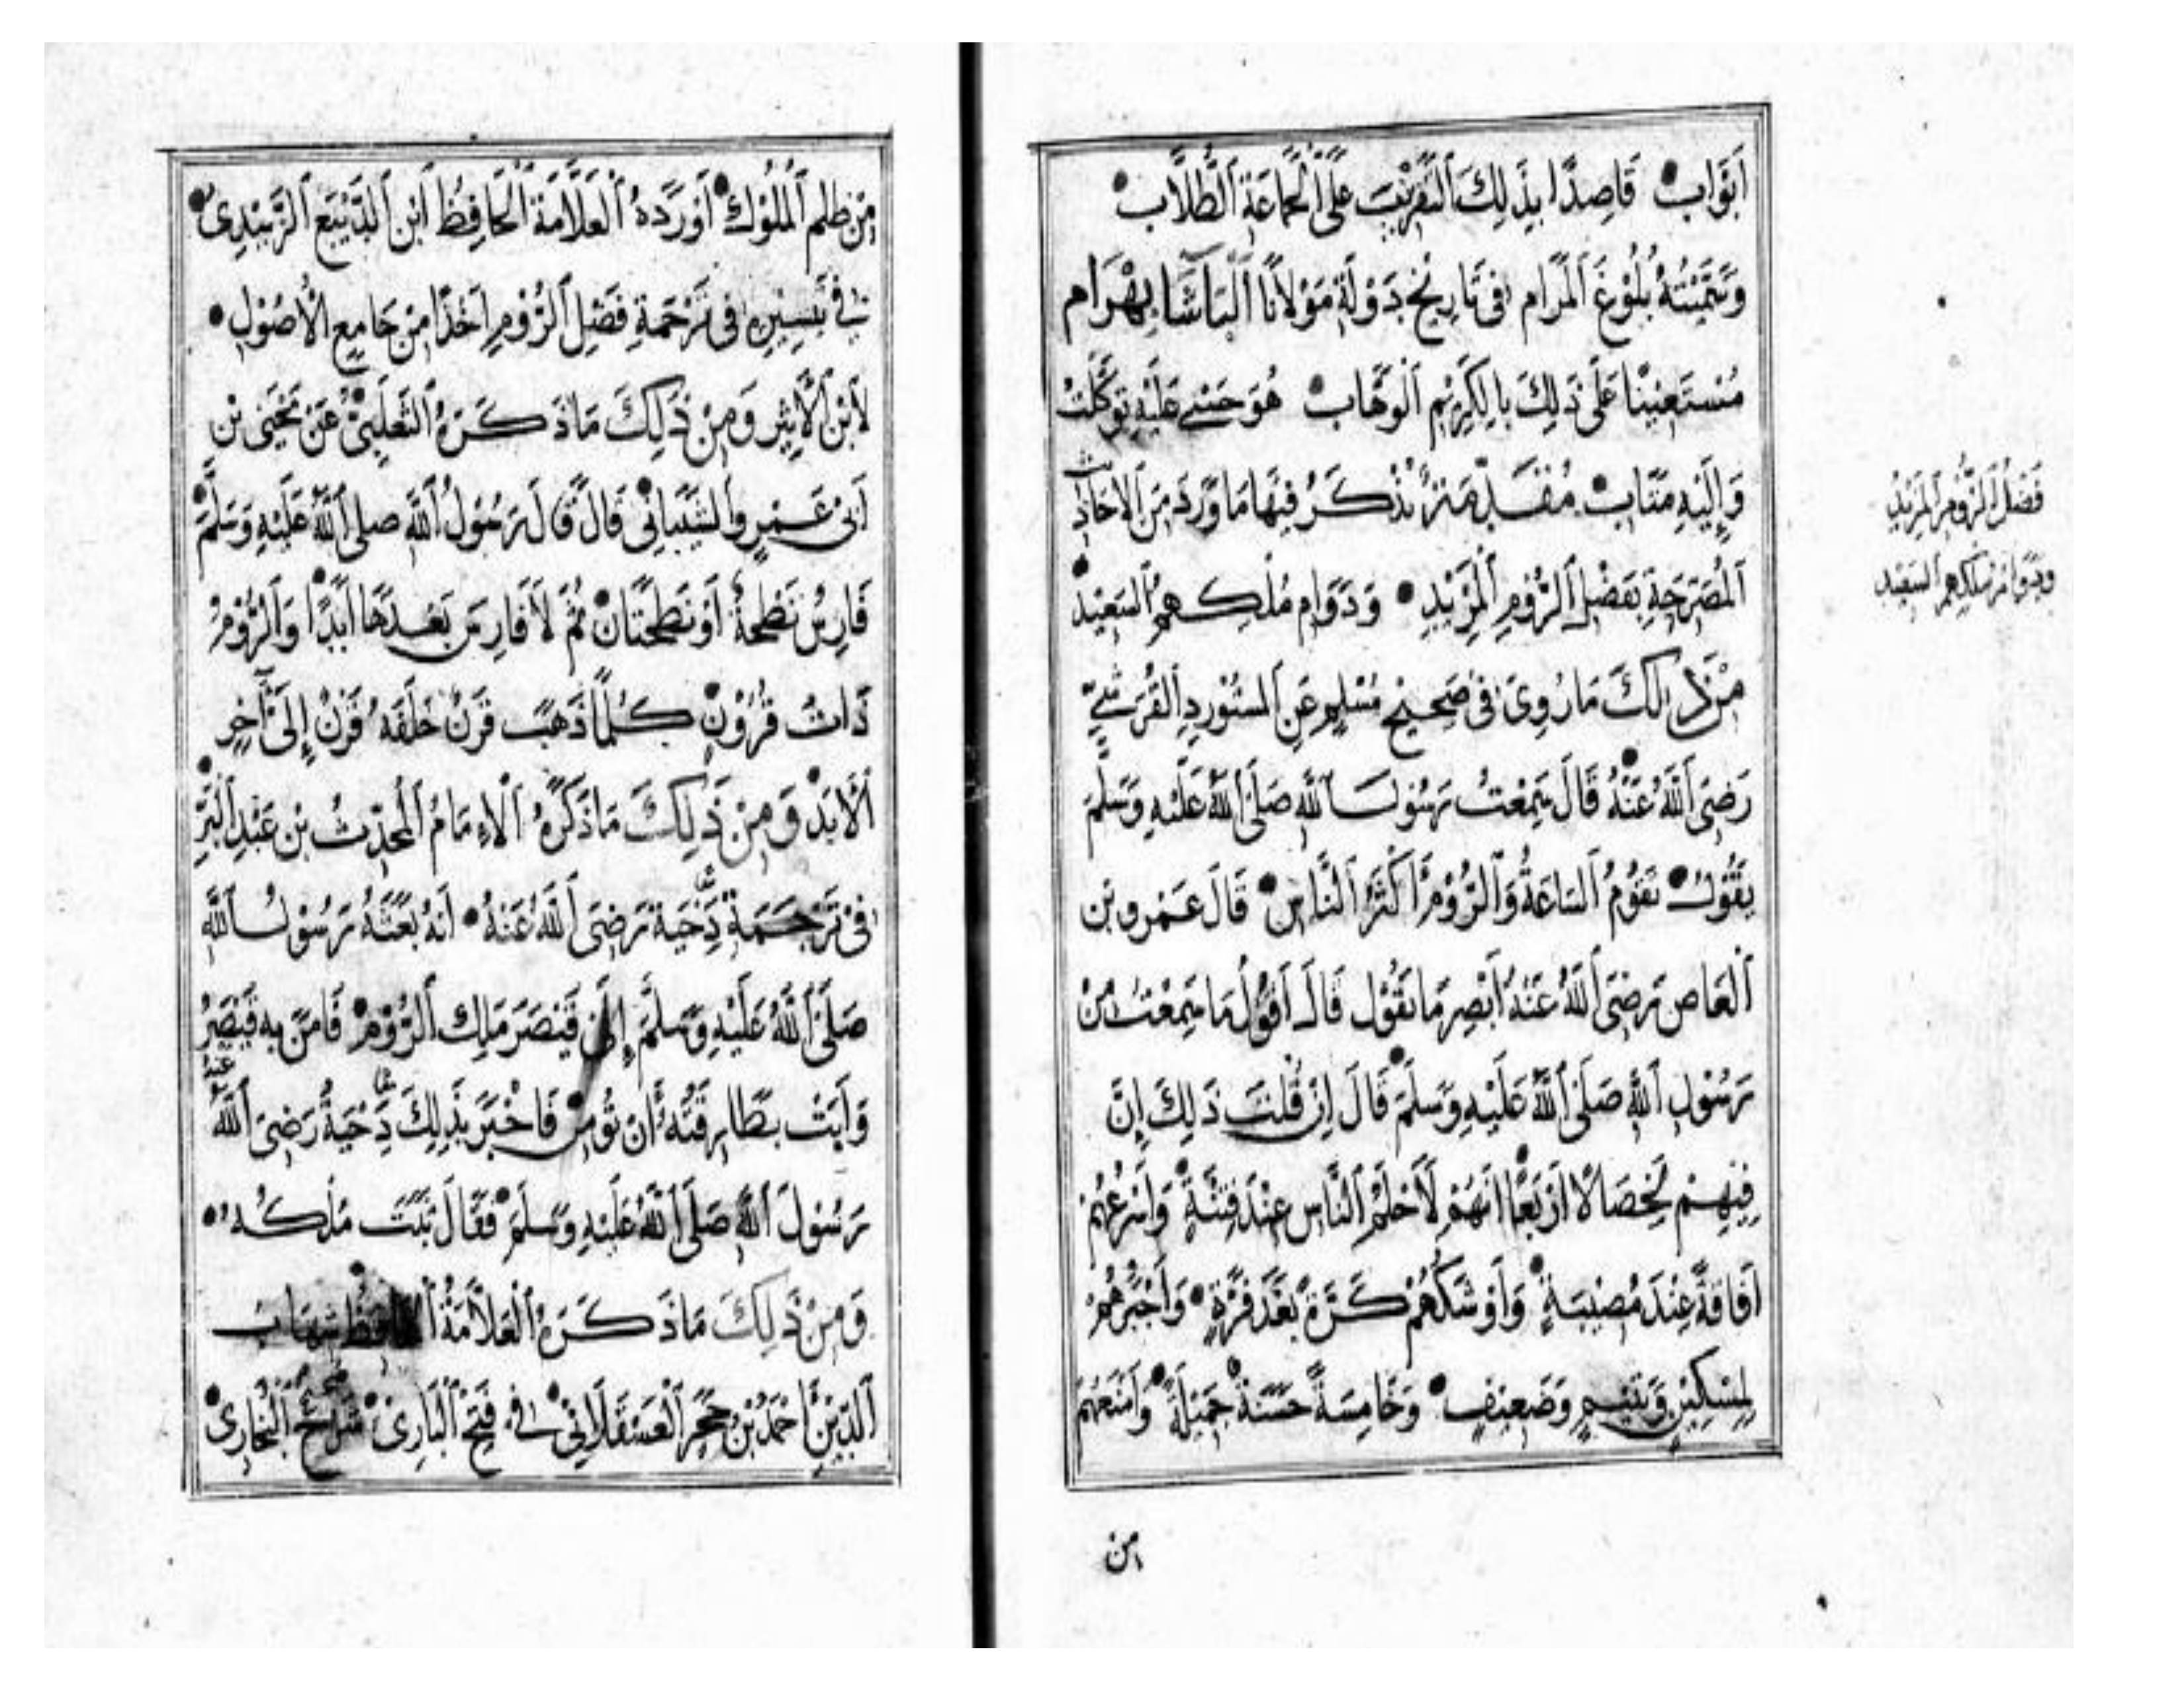 اَبْوَاب قَاصِدًا بِذَلِكَ اَلتَّقْرِيْبَ عَلَى اَلْجَمَاعَةِ اَلطُّلَّاب
وَسَمَّيْتُهُ بُلُوْغَ اَلْمَرَام فِى تَارِيْخِ دَوْلَةِ مَوْلَانَا اَلْبَاشَا بِهْرَام
مُسْتَعِيْنًا عَلَى ذَلِكَ بِالْكَرِيْمِ اَلْوَهَّاب هُوَ حَسْبِى عَلَيْهِ تَوَكَّلْتُ
وَإِلَيْهِ مَتَاب مُقَدِّمَة نَذْكَرُ فِيْهَا مَا وَرَدَ مِنَ الْاَحَادِيث
اَلْمُصَرِّحَةِ بِفَضْلِ اَلرُّوْمِ اَلْمَزِيْدِ وَدَوَامِ مُلْكِهِمُ اَلسَّعِيْد
مِنْ ذَلِكَ مَا رُوِىَ فِى صَحِيْحِ مُسْلِمٍ عَنِ اَلْمُسْتَوْرِدِ اَلْقُرَشِيّ
رَضِىَ اَللهُ عَنْهُ قَالَ سَمِعْتُ رَسُوْلَ اَللهِ صَلَّى اَللهُ عَلَيْهِ وَسَلَّمَ
يَقُوْلُ تَقُوْمُ اَلسَّاعَةُ وَاَلرُّوْمُ اَكْثَرُ اَلنَّاسِ قَالَ عَمْرو بْن
اَلْعَاص رَضِىَ اَللهُ عَنْهُ اَبْصِر مَا تَقُوْل قَالَ اَقُوْلُ مَا سَمِعْتُ مِنْ
رَسُوْلِ اَللهِ صَلَّى اَللهُ عَلَيْهِ وَسَلَّمَ قَالَ لَئِنْ قُلْتَ ذَلِكَ إِنَّ
فِيْهِمْ لَخِصَالًا اَرْبَعًا اِنَّهُمْ لَاَحْلَمُ اَلنَّاسِ عِنْدَ فِتْنَةٍ وَاَسْرَعُهُمْ
اَفَاقَةً عِنْدَ مُصِيْبَةٍ وَاَوْشَكُهُمْ كَرَّةً بَعْدَ فَرَّةٍ وَاَجْبَرُهُمْ
لِمِسْكِيْنٍ وَيَتِيْمٍ وَضَعِيْفٍ وَخَامِسَةً حَسَنَةً جَمِيْلَةً وَاَمْنَعُهُمْ
من
فَضْلُ اَلرُّوْمِ اَلْمَزِيْدِ
وَدَوَامُ مُلْكِهِمِ اَلسَّعِيْد
مِنْ ظُلْمِ اَلْمُلُوْكِ اَوْرَدَهُ اَلْعَلَّامَةُ اَلْحَافِظُ اِبْنُ اَلدَّيْبَع اَلزَّبِيْدِى
فِى تَيْسِيْرِهِ فِى تَرْجَمَةِ فَضْلِ اَلرُّوْمِ اَخْذًا مِنْ جَامِعِ الْاُصُوْل
لِابْنِ اَلْاَثِيْرِ وَمِنْ ذَلِكَ مَا ذَكَرَهُ اَلثَّعْلَبِىُّ عَنْ يَحْيَى بْن
اَبِى عَمْرٍو اَلشَّيْبَانِى قَالَ قَالَ رَسُوْلُ اَللهِ صلى اَللهُ عَلَيْهِ وَسَلَّمَ
فَارِسُ نَطْحَةٌ اَوْ نَطْحَتَان ثُمَّ لَا فَارِسَ بَعْدَهَا اَبَدًا وَاَلرُّوْمُ
ذَاتُ قُرُوْنٍ كُلَّمَا ذَهَبَ قَرْنٌ خَلَفَهُ قَرْنٌ إِلَى آخِرِ
اَلْاَبَدْ وَمِنْ ذَلِكَ مَا ذَكَرَهُ اَلْاِمَامُ اَلْمُحَدِّثُ بْن عَبْدِ اَلْبَرّ
فِى تَرْجَمَةِ دِحْيَة رَضِىَ اَللهُ عَنْهُ اَنَّهُ بَعَثَهُ رَسُوْلُ اَللهِ
صَلَّى اَللهُ عَلَيْهِ وَسَلَّمَ إِلَى قَيْصَرَ مَلِكِ اَلرُّوْمِ فَامَنَ بِهِ قَيْصَرُ
وَاَبَتْ بَطَارِقَتُهُ اَنْ تُؤْمِن فَاخْبَرَ بِذَلِكَ دِحْيَةُ رَضِىَ اَللهُ عنه
رَسُوْلَ اَللهِ صَلَّى اَللهُ عَلَيْهِ وَسَلَّمَ فَقَالَ ثَبَتَ مُلْكُهُ
وَمِنْ ذَلِكَ مَا ذَكَرَهُ اَلْعَلَّامَةُ اَلْحَافِظُ شِهَابُ
اَلدِّيْنِ اَحْمَدُ بْنُ حَجَرِ اَلْعَسْقَلَانِى فِى فَتْحِ اَلْبَارِى شَرْحِ اَلْبُخَارِى